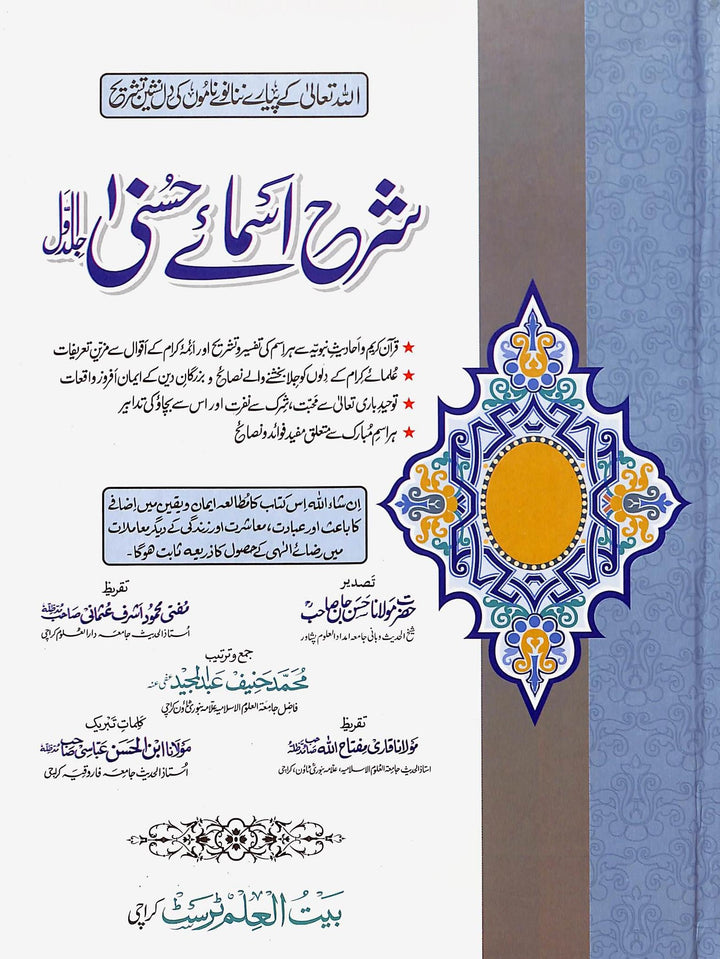 اللہ تعالیٰ کے پیارے ننانوے ناموں کی دل نشین تشریح
شرح اسمائے حسنیٰ
جلد اوّل
★ قرآن کریم و احادیثِ نبویہ سے ہر اسم کی تفسیر و تشریح اور ائمۂ کرام کے اقوال سے مزین تعریفات
★ علمائے کرام کے دلوں کو جلا بخشنے والے نصائح و بزرگانِ دین کے ایمان افروز واقعات
★ توحیدِ باری تعالیٰ سے محبت، شرک سے نفرت اور اس سے بچاؤ کی تدابیر
★ ہر اسمِ مبارک سے متعلق مفید فوائد و نصائح
اِن شاء اللہ اِس کتاب کا مطالعہ ایمان و یقین میں اِضافے
کا باعث اور عبادت، معاشرت اور زندگی کے دیگر معاملات
میں رضائے الٰہی کے حصول کا ذریعہ ثابت ہوگا۔
تصدیر
حضرت مولانا حسن جان صاحب
شیخ الحدیث و بانی جامعہ امداد العلوم پشاور
تقریظ
مفتی محمود اشرف عثمانی صاحب مدظلہ
اُستاذ الحدیث جامعہ دارالعلوم کراچی
جمع و ترتیب
محمد حنیف عبدالمجید عفی عنہ
فاضل جامعۃ العلوم الاسلامیہ علامہ بنوری ٹاؤن کراچی
تقریظ
مولانا قاری مفتاح اللہ صاحب مدظلہ
استاذ الحدیث جامعۃ العلوم الاسلامیہ، علامہ بنوری ٹاؤن، کراچی
کلماتِ تبریک
مولانا ابن الحسن عباسی صاحب مدظلہ
اُستاذ الحدیث جامعہ فاروقیہ کراچی
بیت العلم ٹرسٹ کراچی